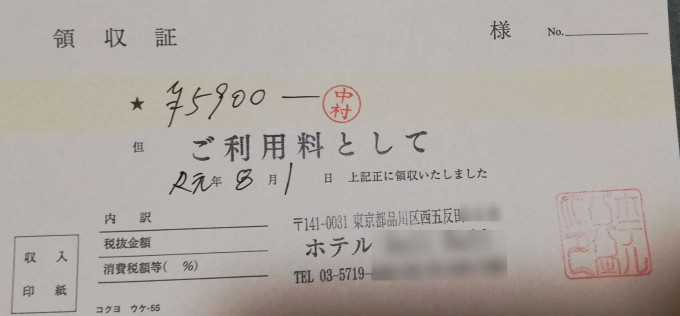 領収証 様 No.
★ ¥5900— 中村
但 ご利用料として
R元年 8月1日 上記正に領収いたしました
内訳
税抜金額
消費税額等( %)
収入
印紙
〒141-0031 東京都品川区西五反田
ホテル
TEL 03-5719-
コクヨ ウケ-55